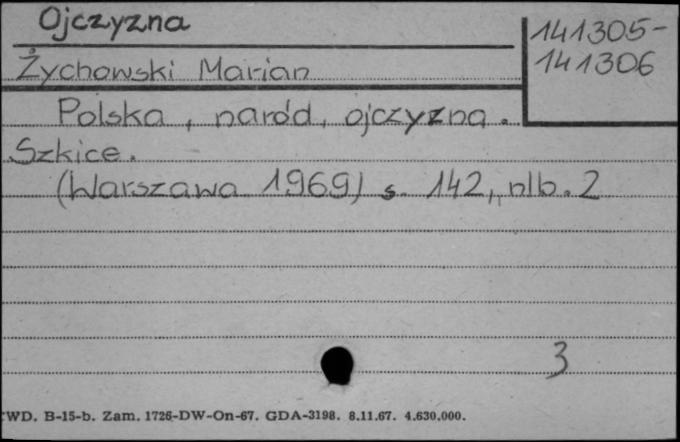 Ojczyzna
141305-
141306
Żychowski Marian
Polska, naród, ojczyzna.
Szkice.
(Warszawa 1969) s. 142, nlb. 2
3
WD. B-15-b. Zam. 1726-DW-On-67. GDA-3198. 8.11.67. 4.630.000.